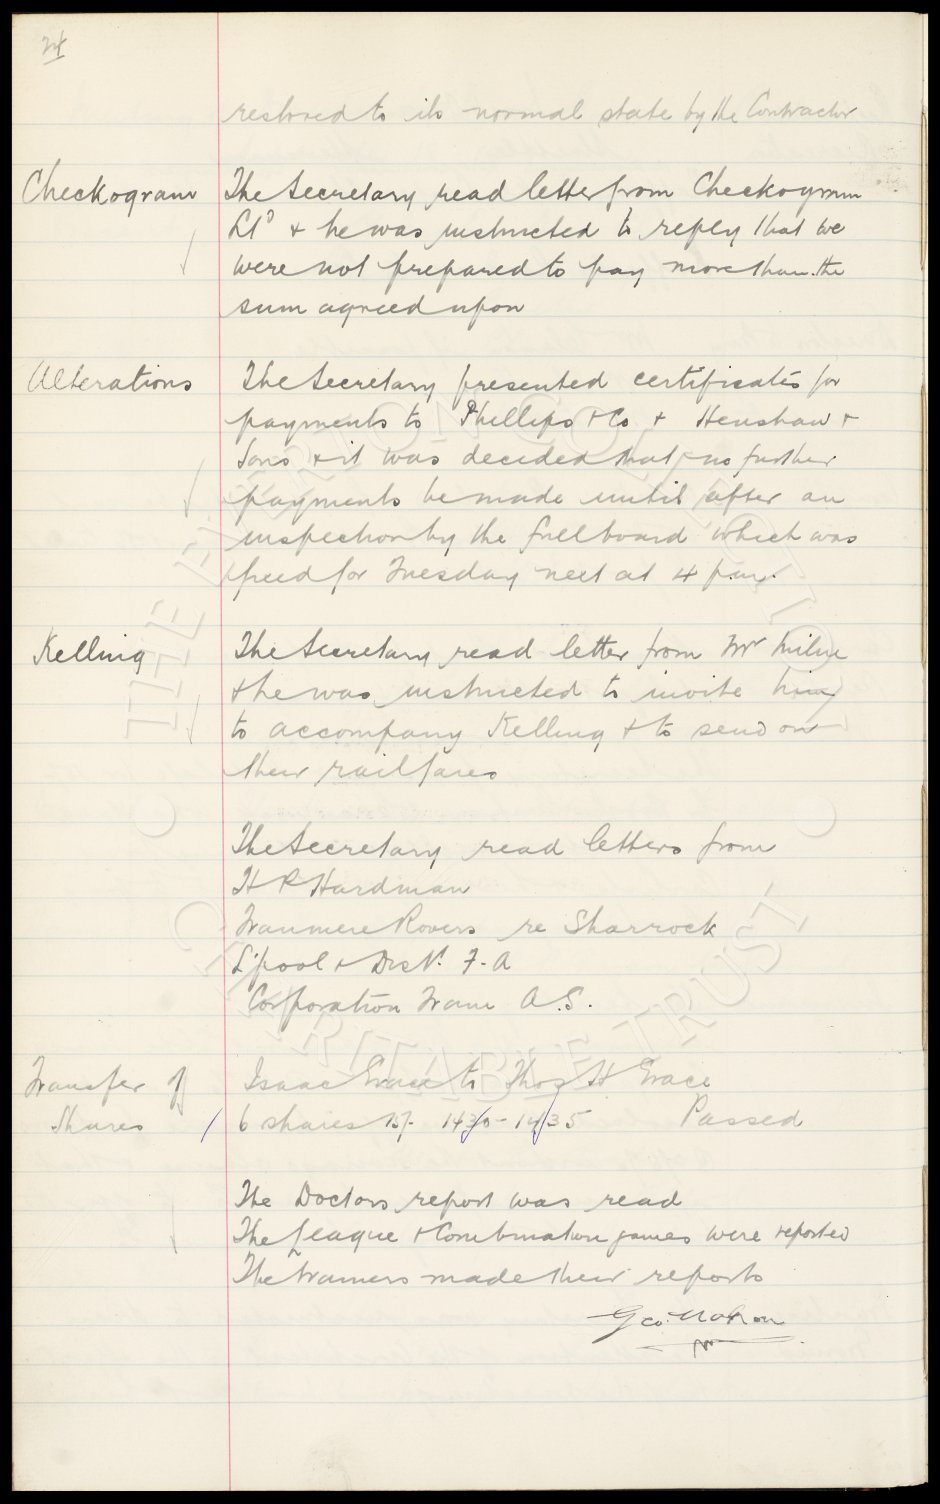 24
restored to its normal state by the Contractor
Checkogram The Secretary read letter from Checkogram
Ltd + he was instructed to reply that we
were not prepared to pay more than the
sum agreed upon
Alterations The Secretary presented certificates for
payments to Phillips + Co + Henshaw +
Sons + it was decided that no further
payments be made until after an
inspection by the full board which was
fixed for Tuesday next at 4 p.m.
Kelling The Secretary read letter from Mr Milne
+ he was instructed to invite him
to accompany Kelling + to send on
their railfares
The Secretary read letters from
H P Hardman
Tranmere Rovers re Sharrock
L'pool + Dist. F.A
Corporation Tram A.S.
Transfer of Isaac Grace to Thos H Grace
Shares 6 shares 1430-1435 Passed
The Doctors report was read
The League + Combination games were reported
The Trainers made their reports
Geo. Mahon
THE EVERTON COLLECTION
CHARITABLE TRUST